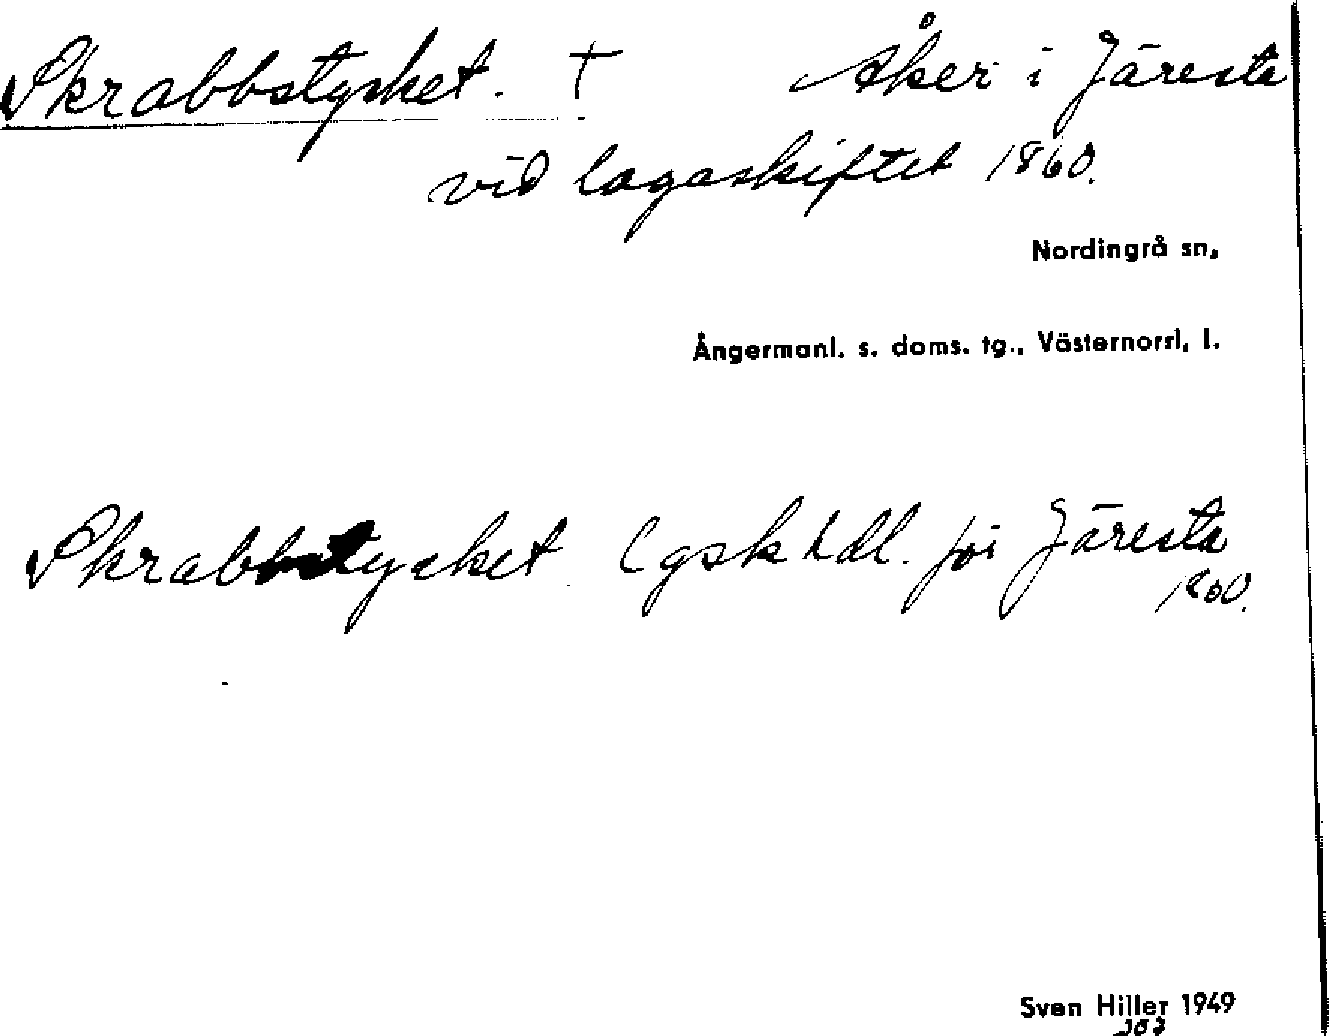 Skrabbstycket. † Åker i Järesta
vid lagaskiftet 1860.
Nordingrå sn,
Ångermanl. s. doms. tg., Västernorrl. l.
Skrabbstycket lgsk hdl. för Järesta
1860.
Sven Hiller 1949